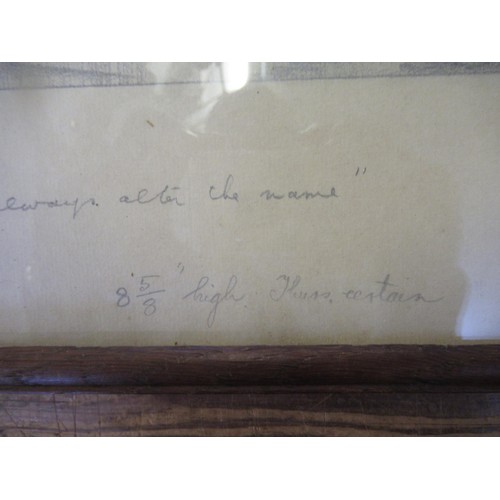 always alter the name"
8 5/8" high. Thus, certain